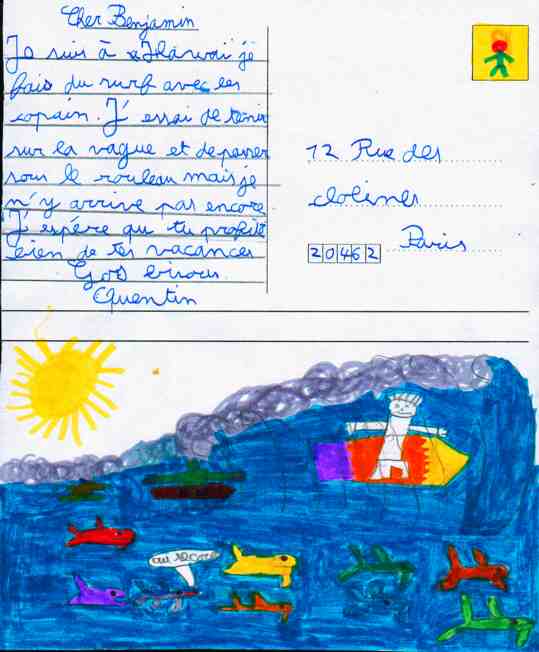 Cher Benjamin
Je suis à Hawaï je
fais du surf avec les
copain. J'essai de tenir
sur la vague et de passer
sous le rouleau mais je
n'y arrive pas encore
J'espére que tu profite
bien de tes vacances
Gos bisous
Quentin
12 Rue des
colines
20462 Paris
au secour